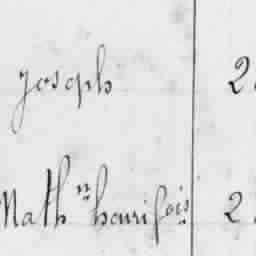 joseph 2
Math n henri fois 2